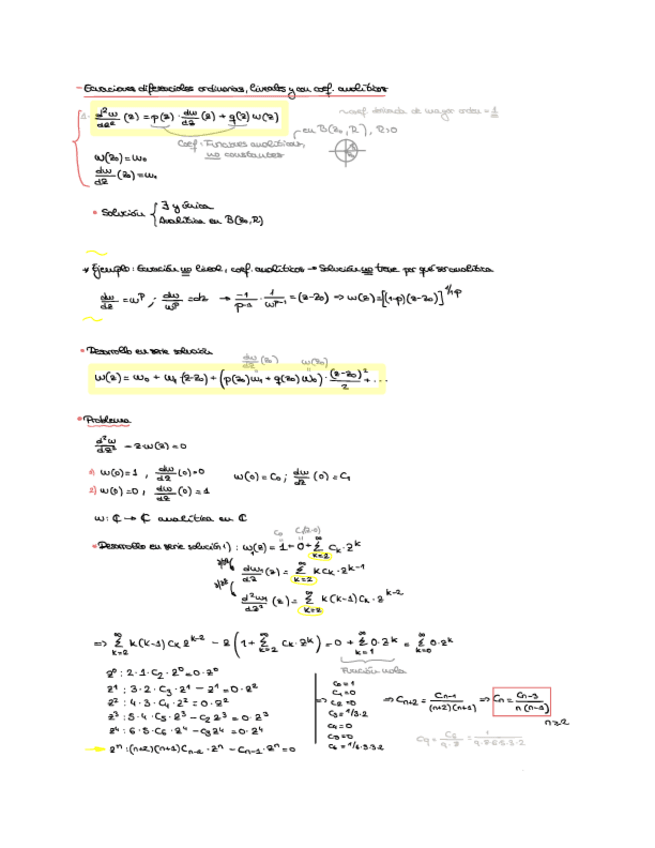 - Ecuaciones diferenciales ordinarias, lineales y con coef. analíticos
1. d²w/dz² (z) = p(z) · dw/dz (z) + q(z) w(z)
~coef. derivada de mayor orden = 1
Coef: Funciones analíticas, en B(z₀, R), R>0
no constantes
w(z₀) = w₀
dw/dz (z₀) = w₁
• Solución { ∃ y única
Analítica en B(z₀, R)
* Ejemplo: Ecuación no lineal, coef. analíticos → Solución no tiene por qué ser analítica
dw/dz = w^p ; dw/w^p = dz → -1/(p-1) · 1/w^(p-1) = (z-z₀) ⇒ w(z) = [(1-p)(z-z₀)]^(1/1-p)
• Desarrollo en serie solución
dw/dz (z₀) w(z₀)
w(z) = w₀ + w₁ (z-z₀) + (p(z₀)w₁ + q(z₀)w₀) · (z-z₀)²/2 + ...
• Problema
d²w/dz² - z·w(z) = 0
1) w(0)=1 , dw/dz (0)=0 w(0) = C₀ ; dw/dz (0) = C₁
2) w(0)=0 , dw/dz (0) = 1
w: ℂ → ℂ analítica en ℂ
C₀ C₁(z-0)
• Desarrollo en serie solución 1) : w₁(z) = 1 + 0 + ∑_{k=2}^∞ C_k · z^k
dw₁/dz (z) = ∑_{k=2}^∞ k C_k · z^(k-1)
d²w₁/dz² (z) = ∑_{k=2}^∞ k(k-1) C_k · z^(k-2)
⇒ ∑_{k=2}^∞ k(k-1) C_k z^(k-2) - z (1 + ∑_{k=2}^∞ C_k · z^k) = 0 + ∑_{k=1}^∞ 0·z^k = ∑_{k=0}^∞ 0·z^k
Función nula
z⁰ : 2·1·C₂·z⁰ = 0·z⁰
z¹ : 3·2·C₃·z¹ - z¹ = 0·z²
z² : 4·3·C₄·z² = 0·z²
z³ : 5·4·C₅·z³ - C₂z³ = 0·z³
z⁴ : 6·5·C₆·z⁴ - C₃z⁴ = 0·z⁴
→ zⁿ : (n+2)(n+1)C_{n+2}·zⁿ - C_{n-1}·zⁿ = 0
⇒ C₀ = 1
C₁ = 0
C₂ = 0
C₃ = 1/3·2
C₄ = 0
C₅ = 0
C₆ = 1/6·5·3·2
⇒ C_{n+2} = C_{n-1}/((n+2)(n+1)) ⇒ C_n = C_{n-3}/(n(n-1))
n≥2
C₉ = C₆/(9·8) = 1/(9·8·6·5·3·2)